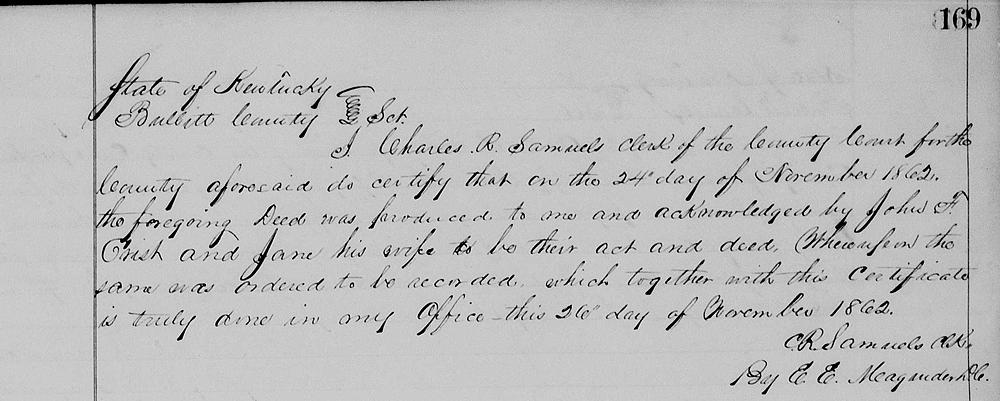 169
State of Kentucky
Bullitt County } Sct.
I Charles R. Samuels clerk of the County Court for the
County aforesaid do certify that on the 24" day of November 1862.
the foregoing Deed was produced to me and acknowledged by John F.
Crist and Jane his wife to be their act and deed. Whereupon the
same was ordered to be recorded. which together with this Certificate
is truly done in my Office this 26" day of November 1862.
C.R. Samuels Clk.
By E. E. Meagruder D.C.